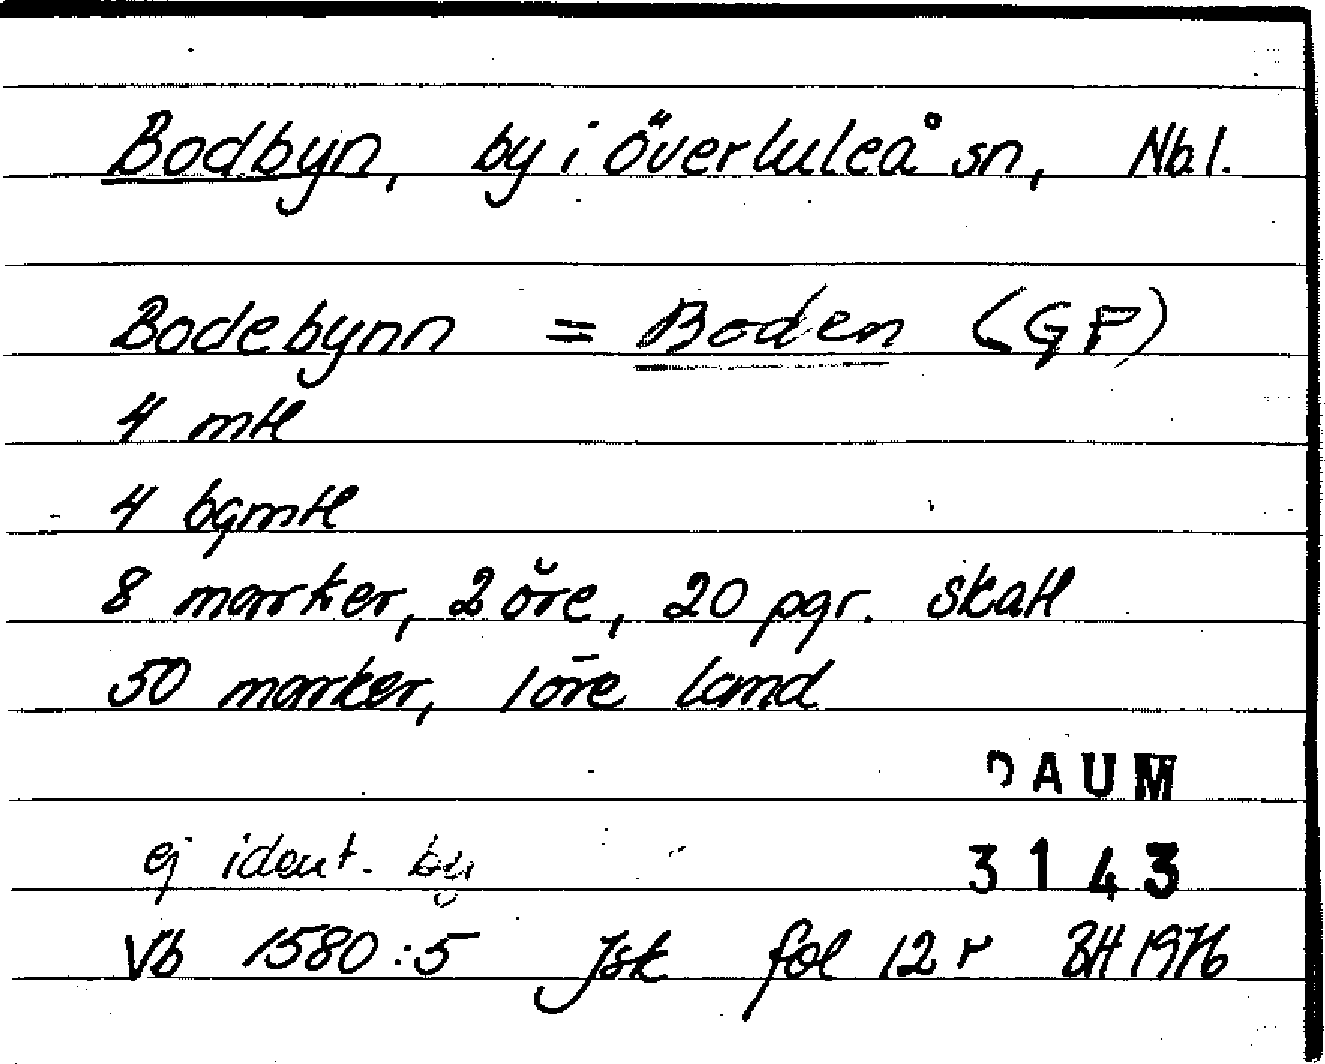 Bodbyn, by i överluleå sn, Nb.l.
Bodebynn = Boden (GF)
4 mtl
4 bgmtl
8 marker, 2 öre, 20 pgr. skatt
50 marker, 1 öre land
DAUM
ej ident. by
3143
Vb 1580:5 Jsk fol 12 r BH 1976